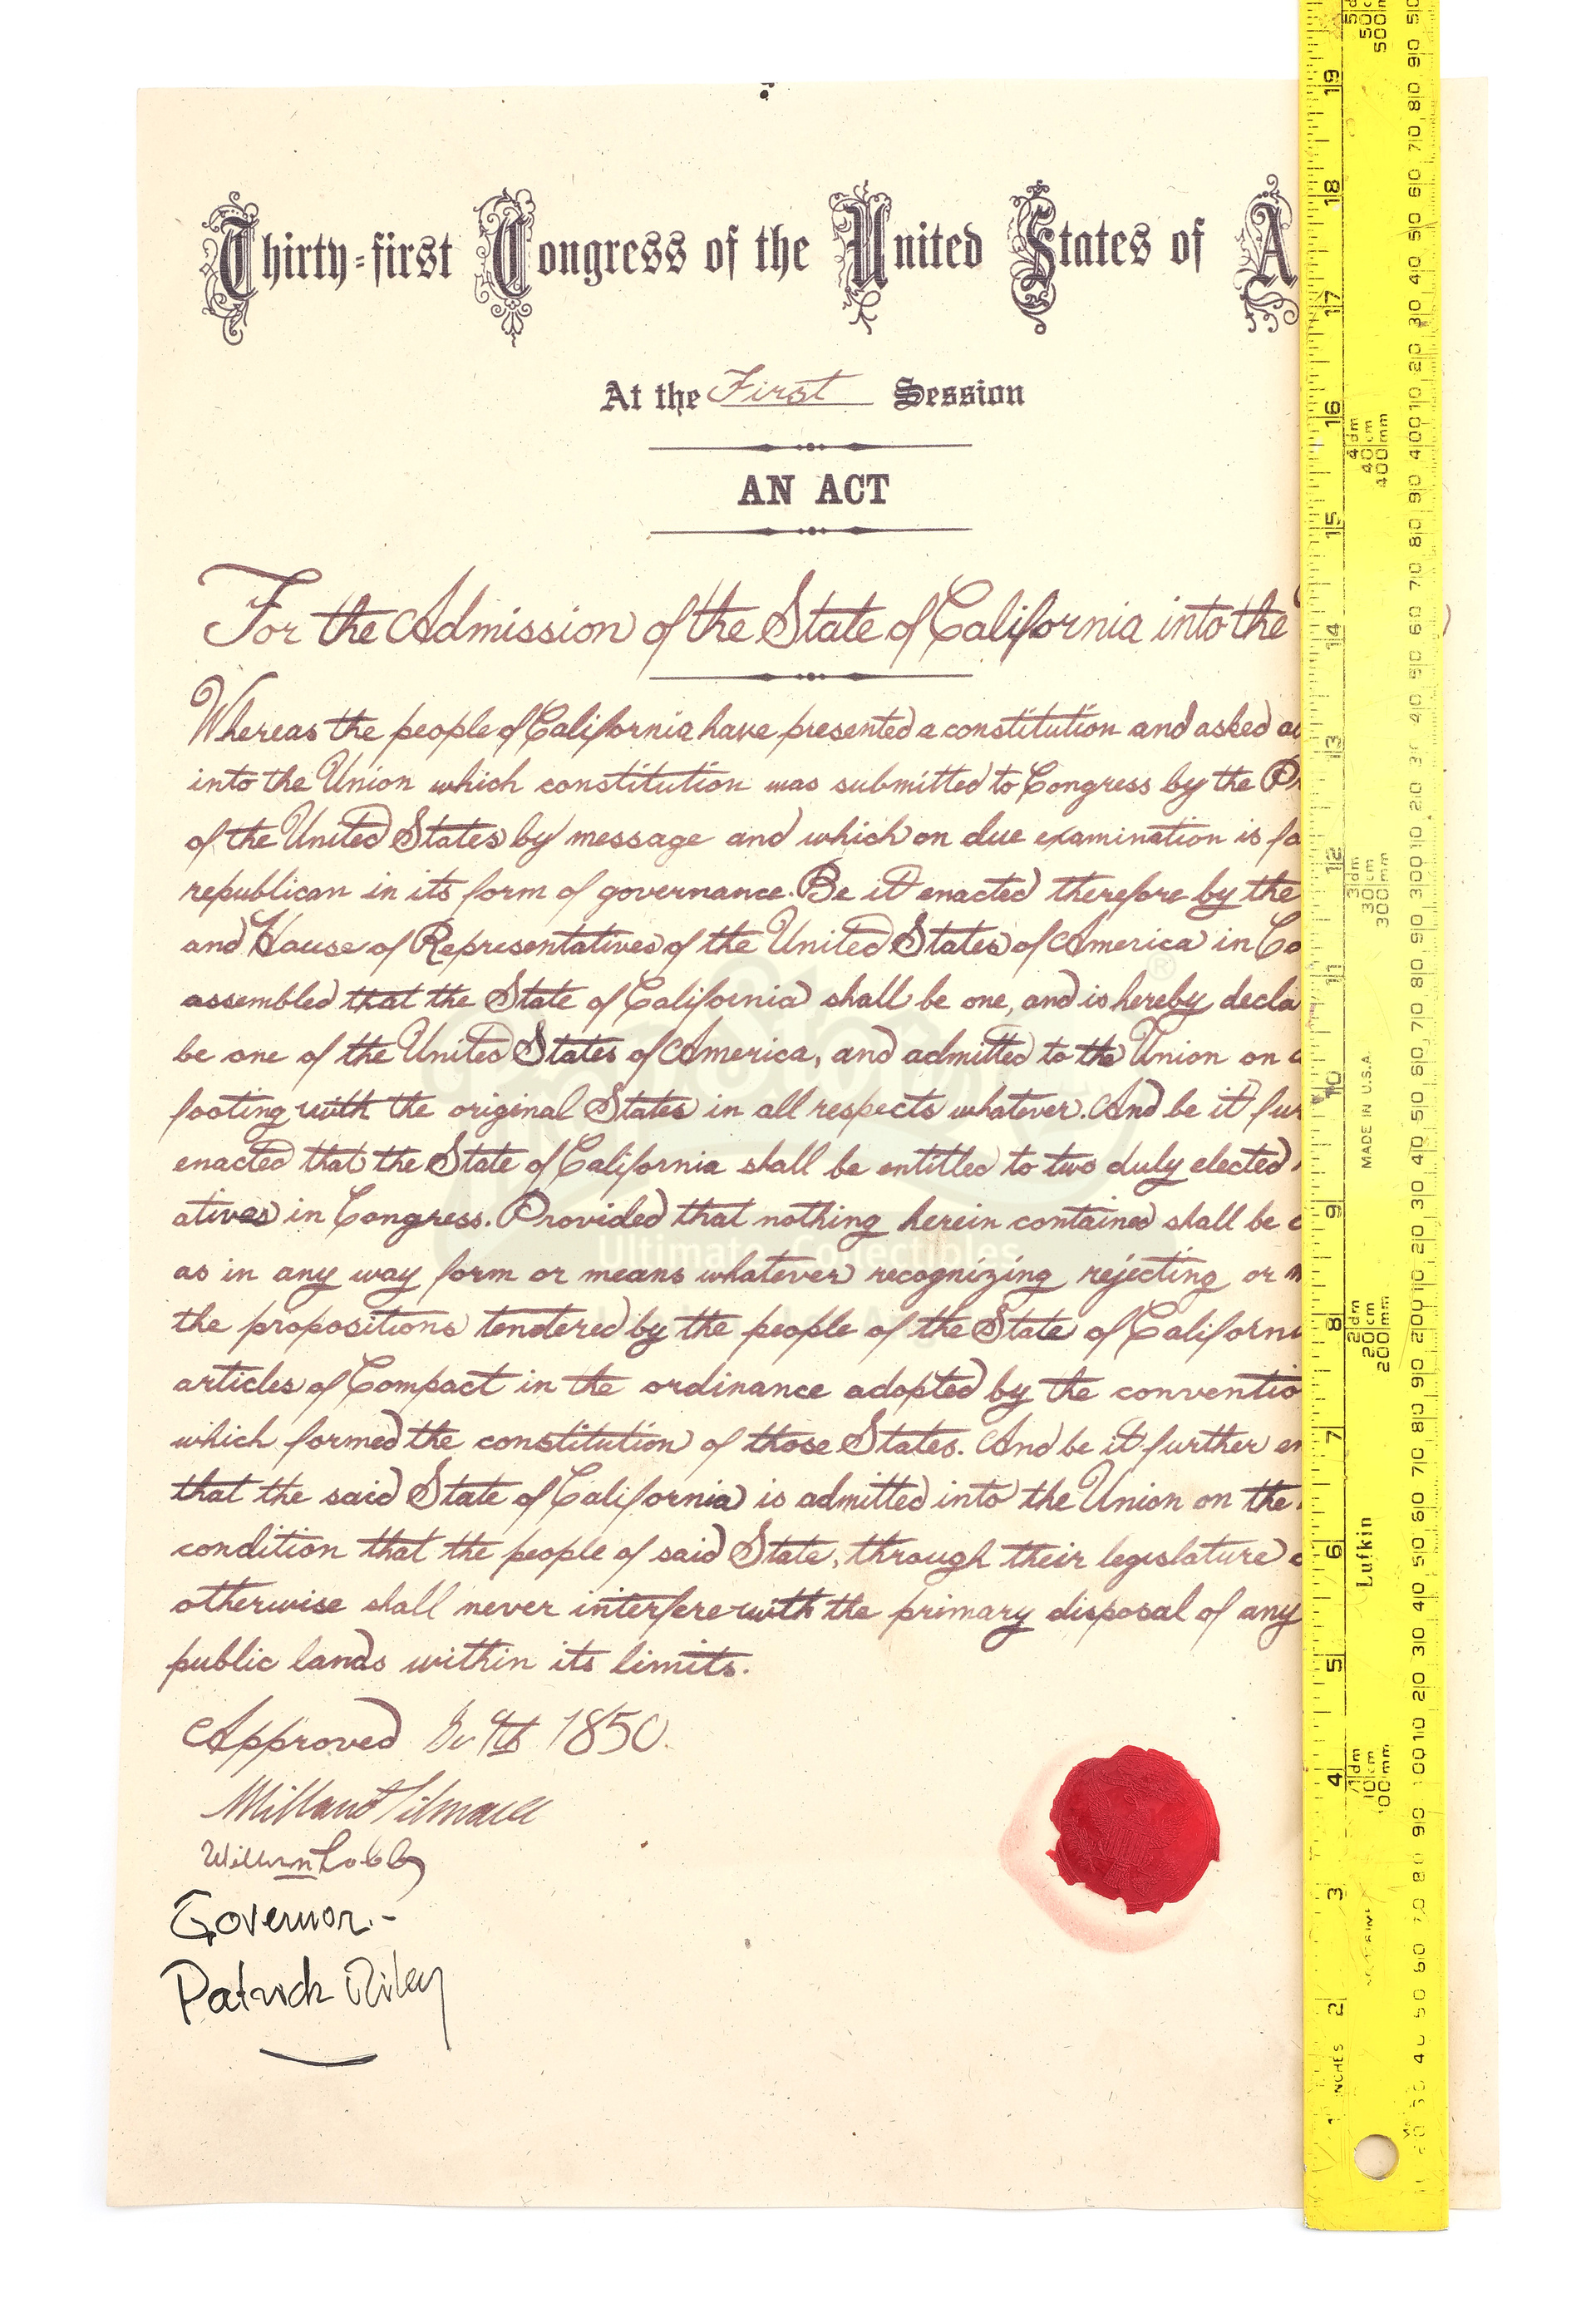 Thirty-first Congress of the United States of A
At the First Session
AN ACT
For the Admission of the State of California into the
Whereas the people of California have presented a constitution and asked
into the Union which constitution was submitted to Congress by the
of the United States by message and which on due examination is fo
republican in its form of governance. Be it enacted therefore by the
and House of Representatives of the United States of America in Co
assembled that the State of California shall be one, and is hereby decla
be one of the United States of America, and admitted to the Union on
footing with the original States in all respects whatever. And be it fur
enacted that the State of California shall be entitled to two duly elected
atives in Congress. Provided that nothing herein contained shall be
as in any way form or means whatever recognizing rejecting or
the propositions tendered by the people of the State of Californi
articles of Compact in the ordinance adopted by the conventio
which formed the constitution of those States. And be it further en
that the said State of California is admitted into the Union on the
condition that the people of said State, through their legislature
otherwise shall never interfere with the primary disposal of any
public lands within its limits.
Approved 9th 1850.
Governor.-
Patrick Riley
Ultimate Collectibles
INCHES 1 2 3 4 5 6 7 8 9 10 11 12 13 14 15 16 17 18 19
Lufkin
MADE IN U.S.A.
2dm
20cm
200mm
3dm
30cm
300mm
4dm
40cm
400mm